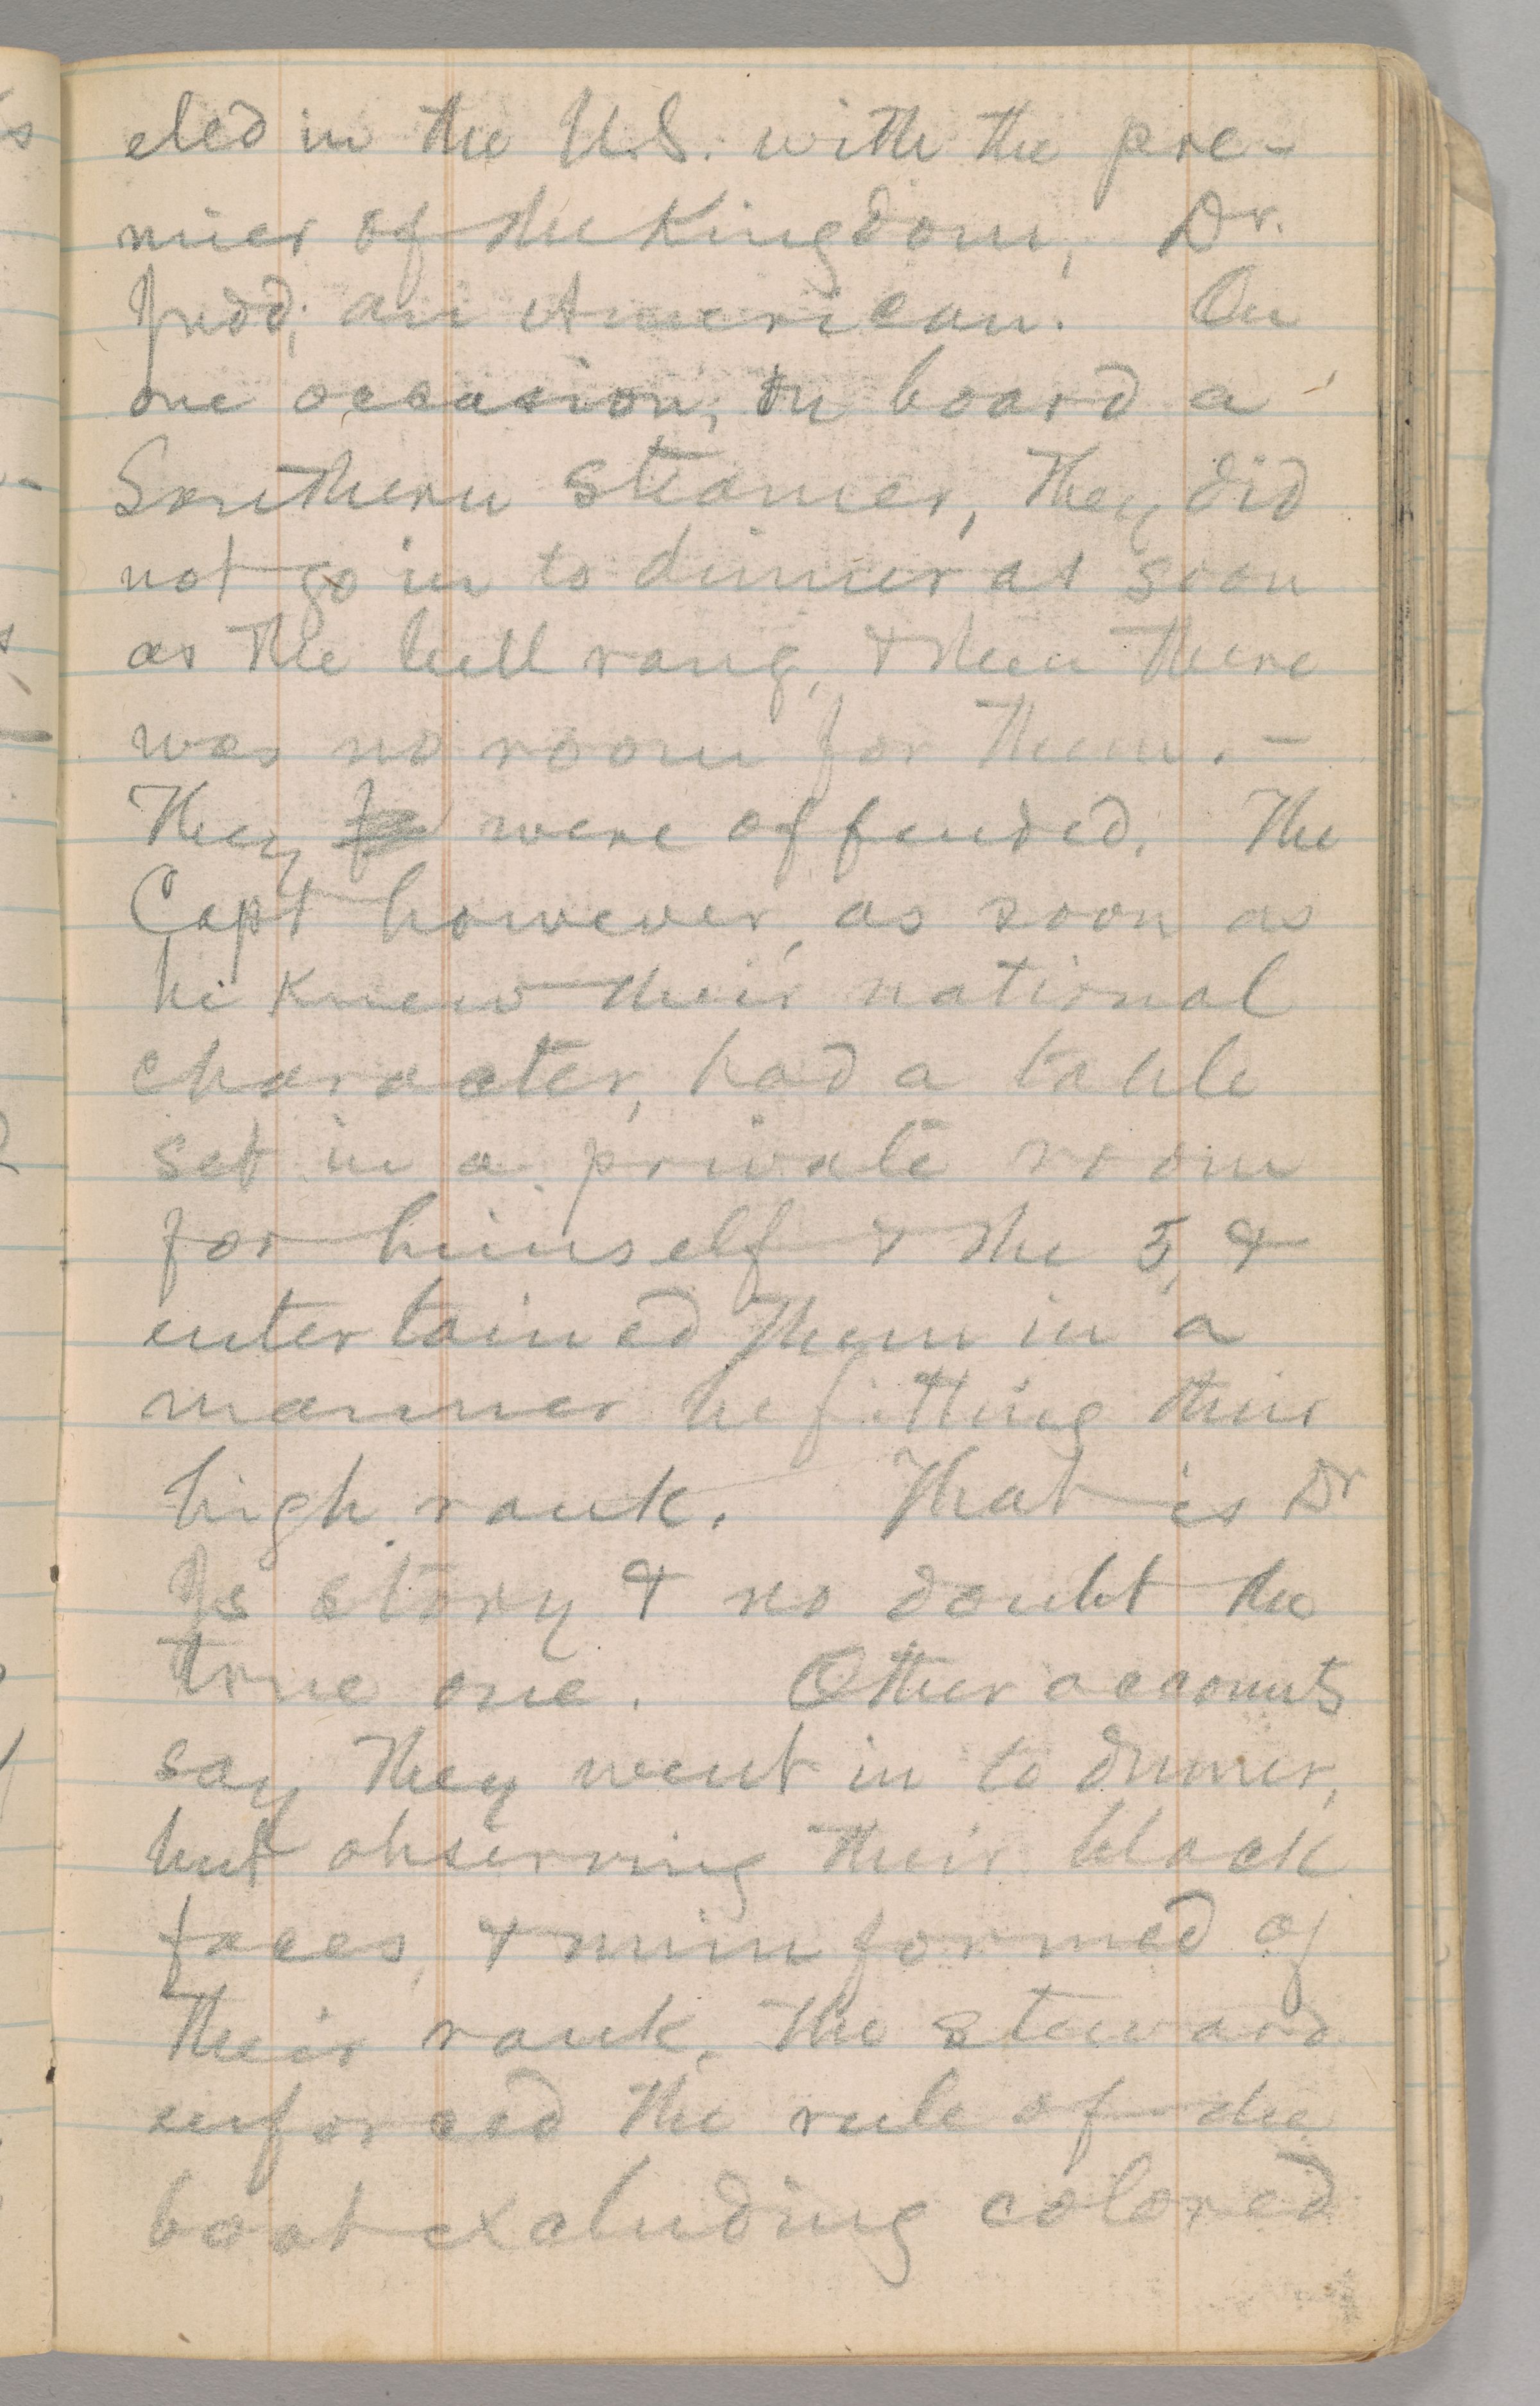 eled in the U.S. with the pre-
mier of the Kingdom, Dr.
Judd, an American. On
one occasion, on board a
Southern steamer, they did
not go in to dinner as soon
as the bell rang, & then there
was no room for them. –
They were offended. The
Capt however, as soon as
he knew their national
character, had a table
set in a private room
for himself & the 5, &
entertained them in a
manner befitting their
high rank. That is Dr
Js story & no doubt the
true one. Other accounts
say they went in to dinner,
but observing their black
faces, & uninformed of
their rank, the steward
enforced the rule of the
boat excluding colored